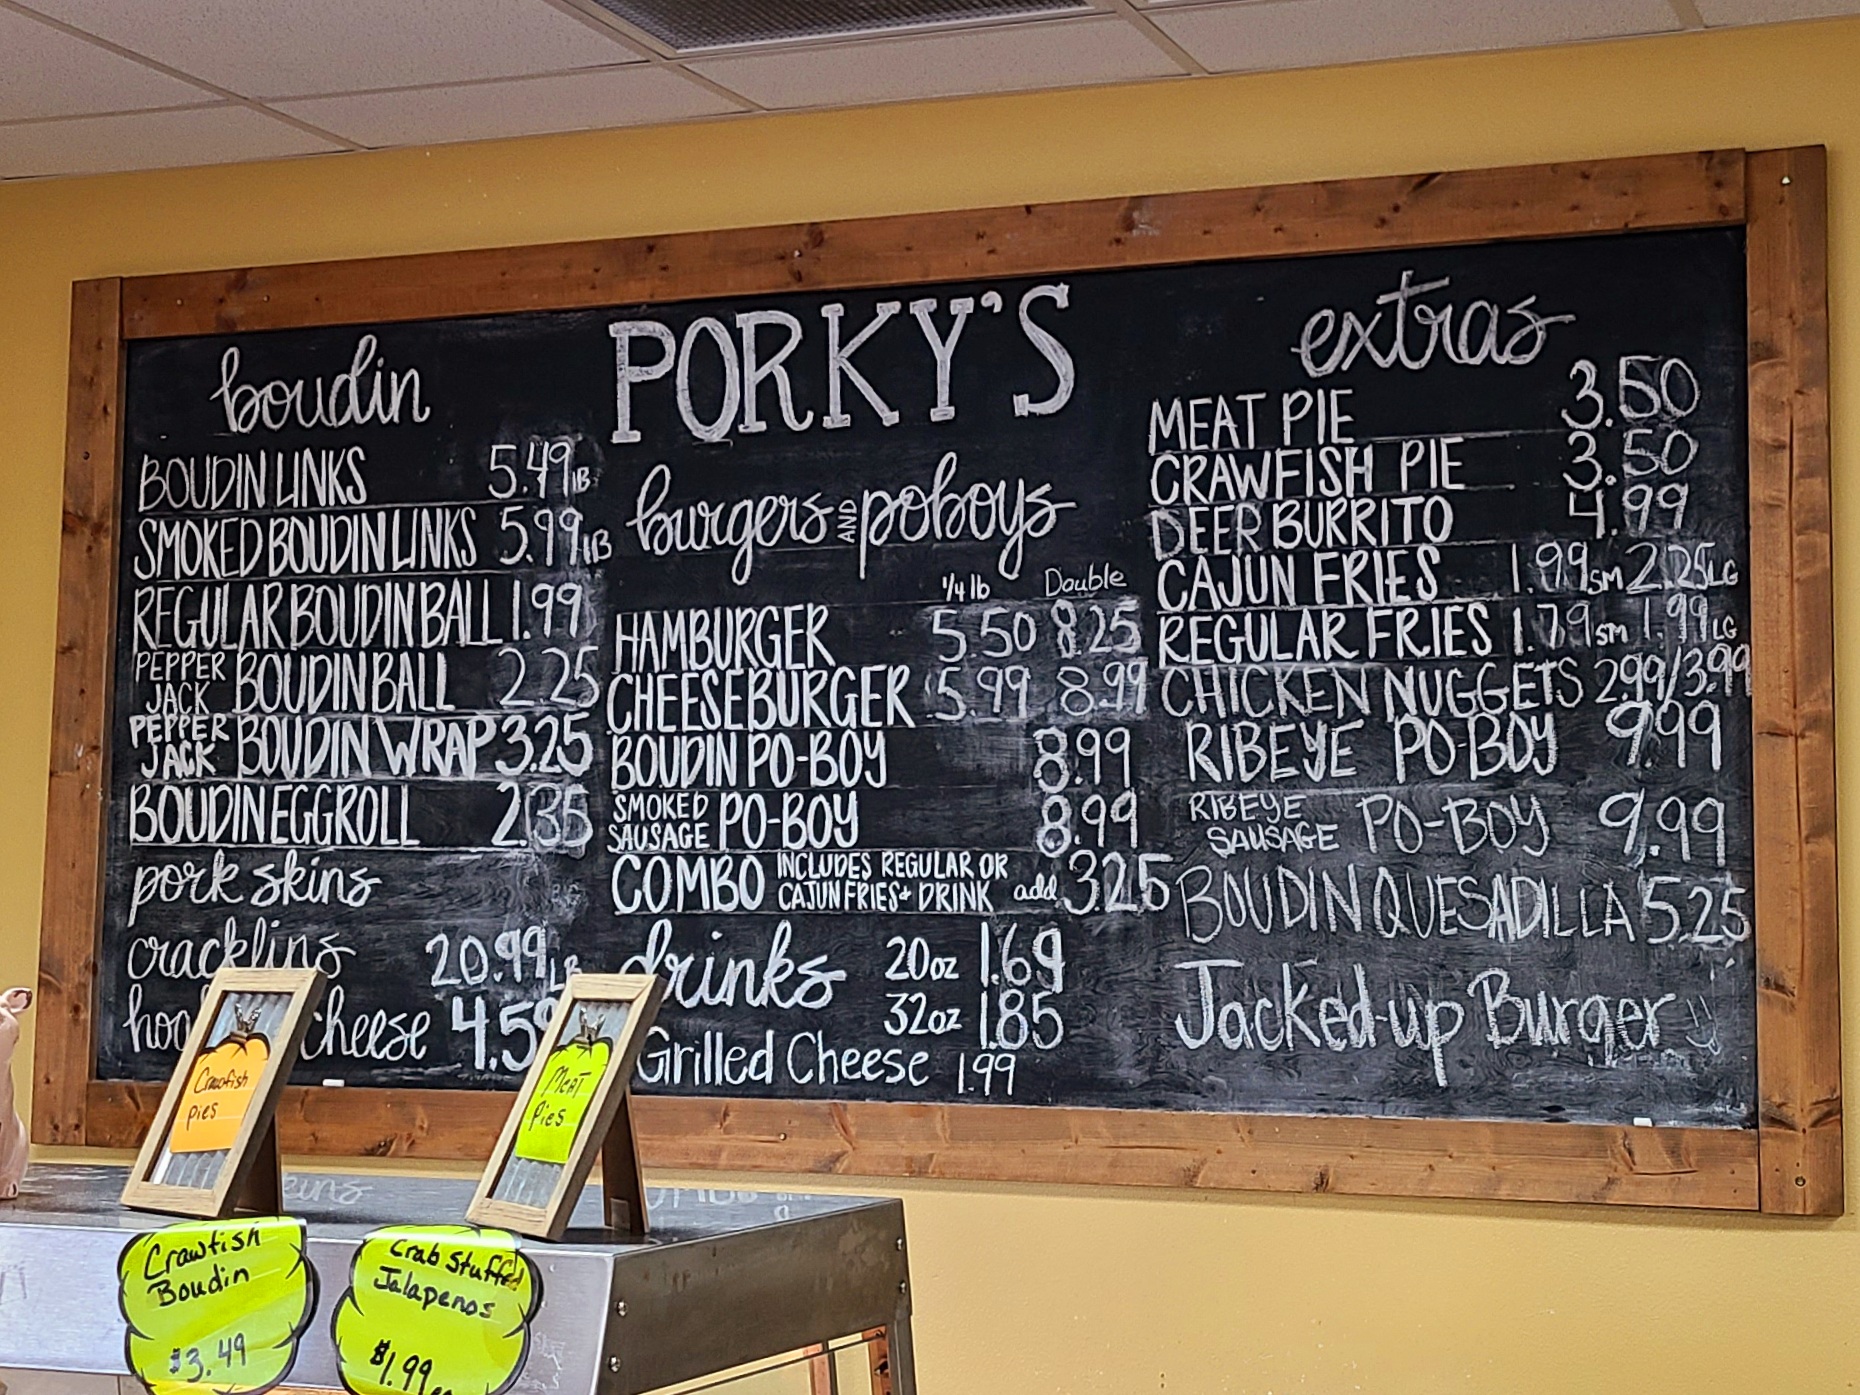 PORKY'S
boudin
BOUDIN LINKS 5.49 LB
SMOKED BOUDIN LINKS 5.99 LB
REGULAR BOUDIN BALL 1.99
PEPPER JACK BOUDIN BALL 2.25
PEPPER JACK BOUDIN WRAP 3.25
BOUDIN EGGROLL 2.35
pork skins
cracklins 20.99 LB
cheese
burgers AND poboys
1/4 lb Double
HAMBURGER 5.50 8.25
CHEESEBURGER 5.99 8.99
BOUDIN PO-BOY 8.99
SMOKED SAUSAGE PO-BOY 8.99
COMBO INCLUDES REGULAR OR CAJUN FRIES + DRINK add 3.25
drinks 20oz 1.69
32oz 1.85
Grilled Cheese 1.99
extras
MEAT PIE 3.50
CRAWFISH PIE 3.50
DEER BURRITO 4.99
CAJUN FRIES 1.99 SM 2.25 LG
REGULAR FRIES 1.79 SM 1.99 LG
CHICKEN NUGGETS 2.99/3.99
RIBEYE PO-BOY 9.99
RIBEYE SAUSAGE PO-BOY 9.99
BOUDIN QUESADILLA 5.25
Jacked-up Burger
Crawfish
pies
Meat
Pies
Crawfish
Boudin
$3.49
Crab Stuffed
Jalapenos
$1.99